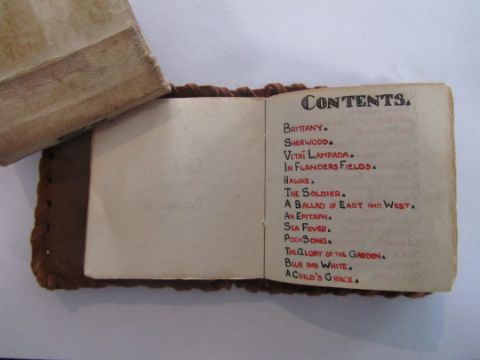 CONTENTS.
BRITTANY.
SHERWOOD.
VITAÏ LAMPADA.
IN FLANDERS FIELDS.
HAWKE.
THE SOLDIER.
A BALLAD OF EAST AND WEST.
AN EPITAPH.
SEA FEVER.
POOH SONG.
THE GLORY OF THE GARDEN.
BLUE AND WHITE.
A CHILD'S GRACE.